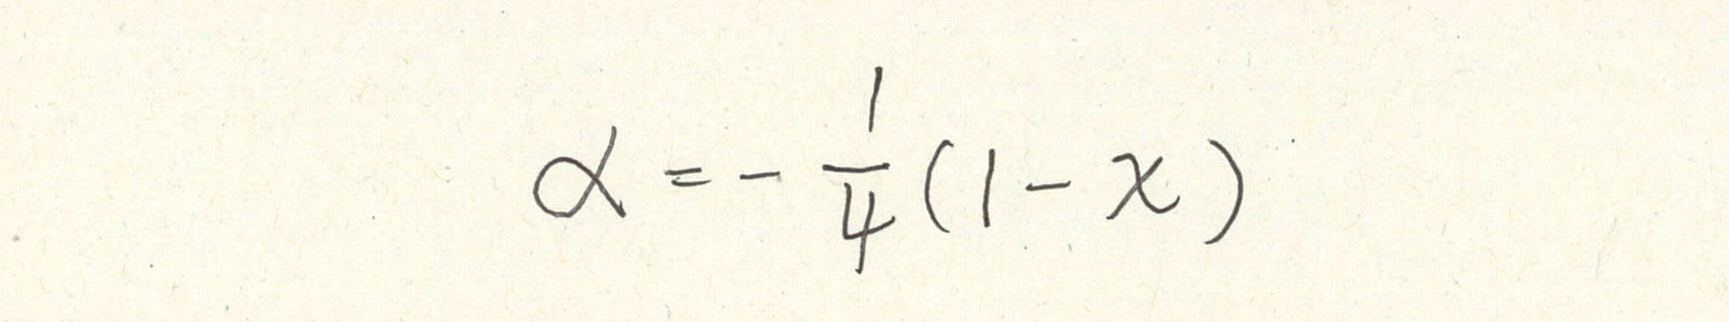 α = - 1/4 (1 - x)